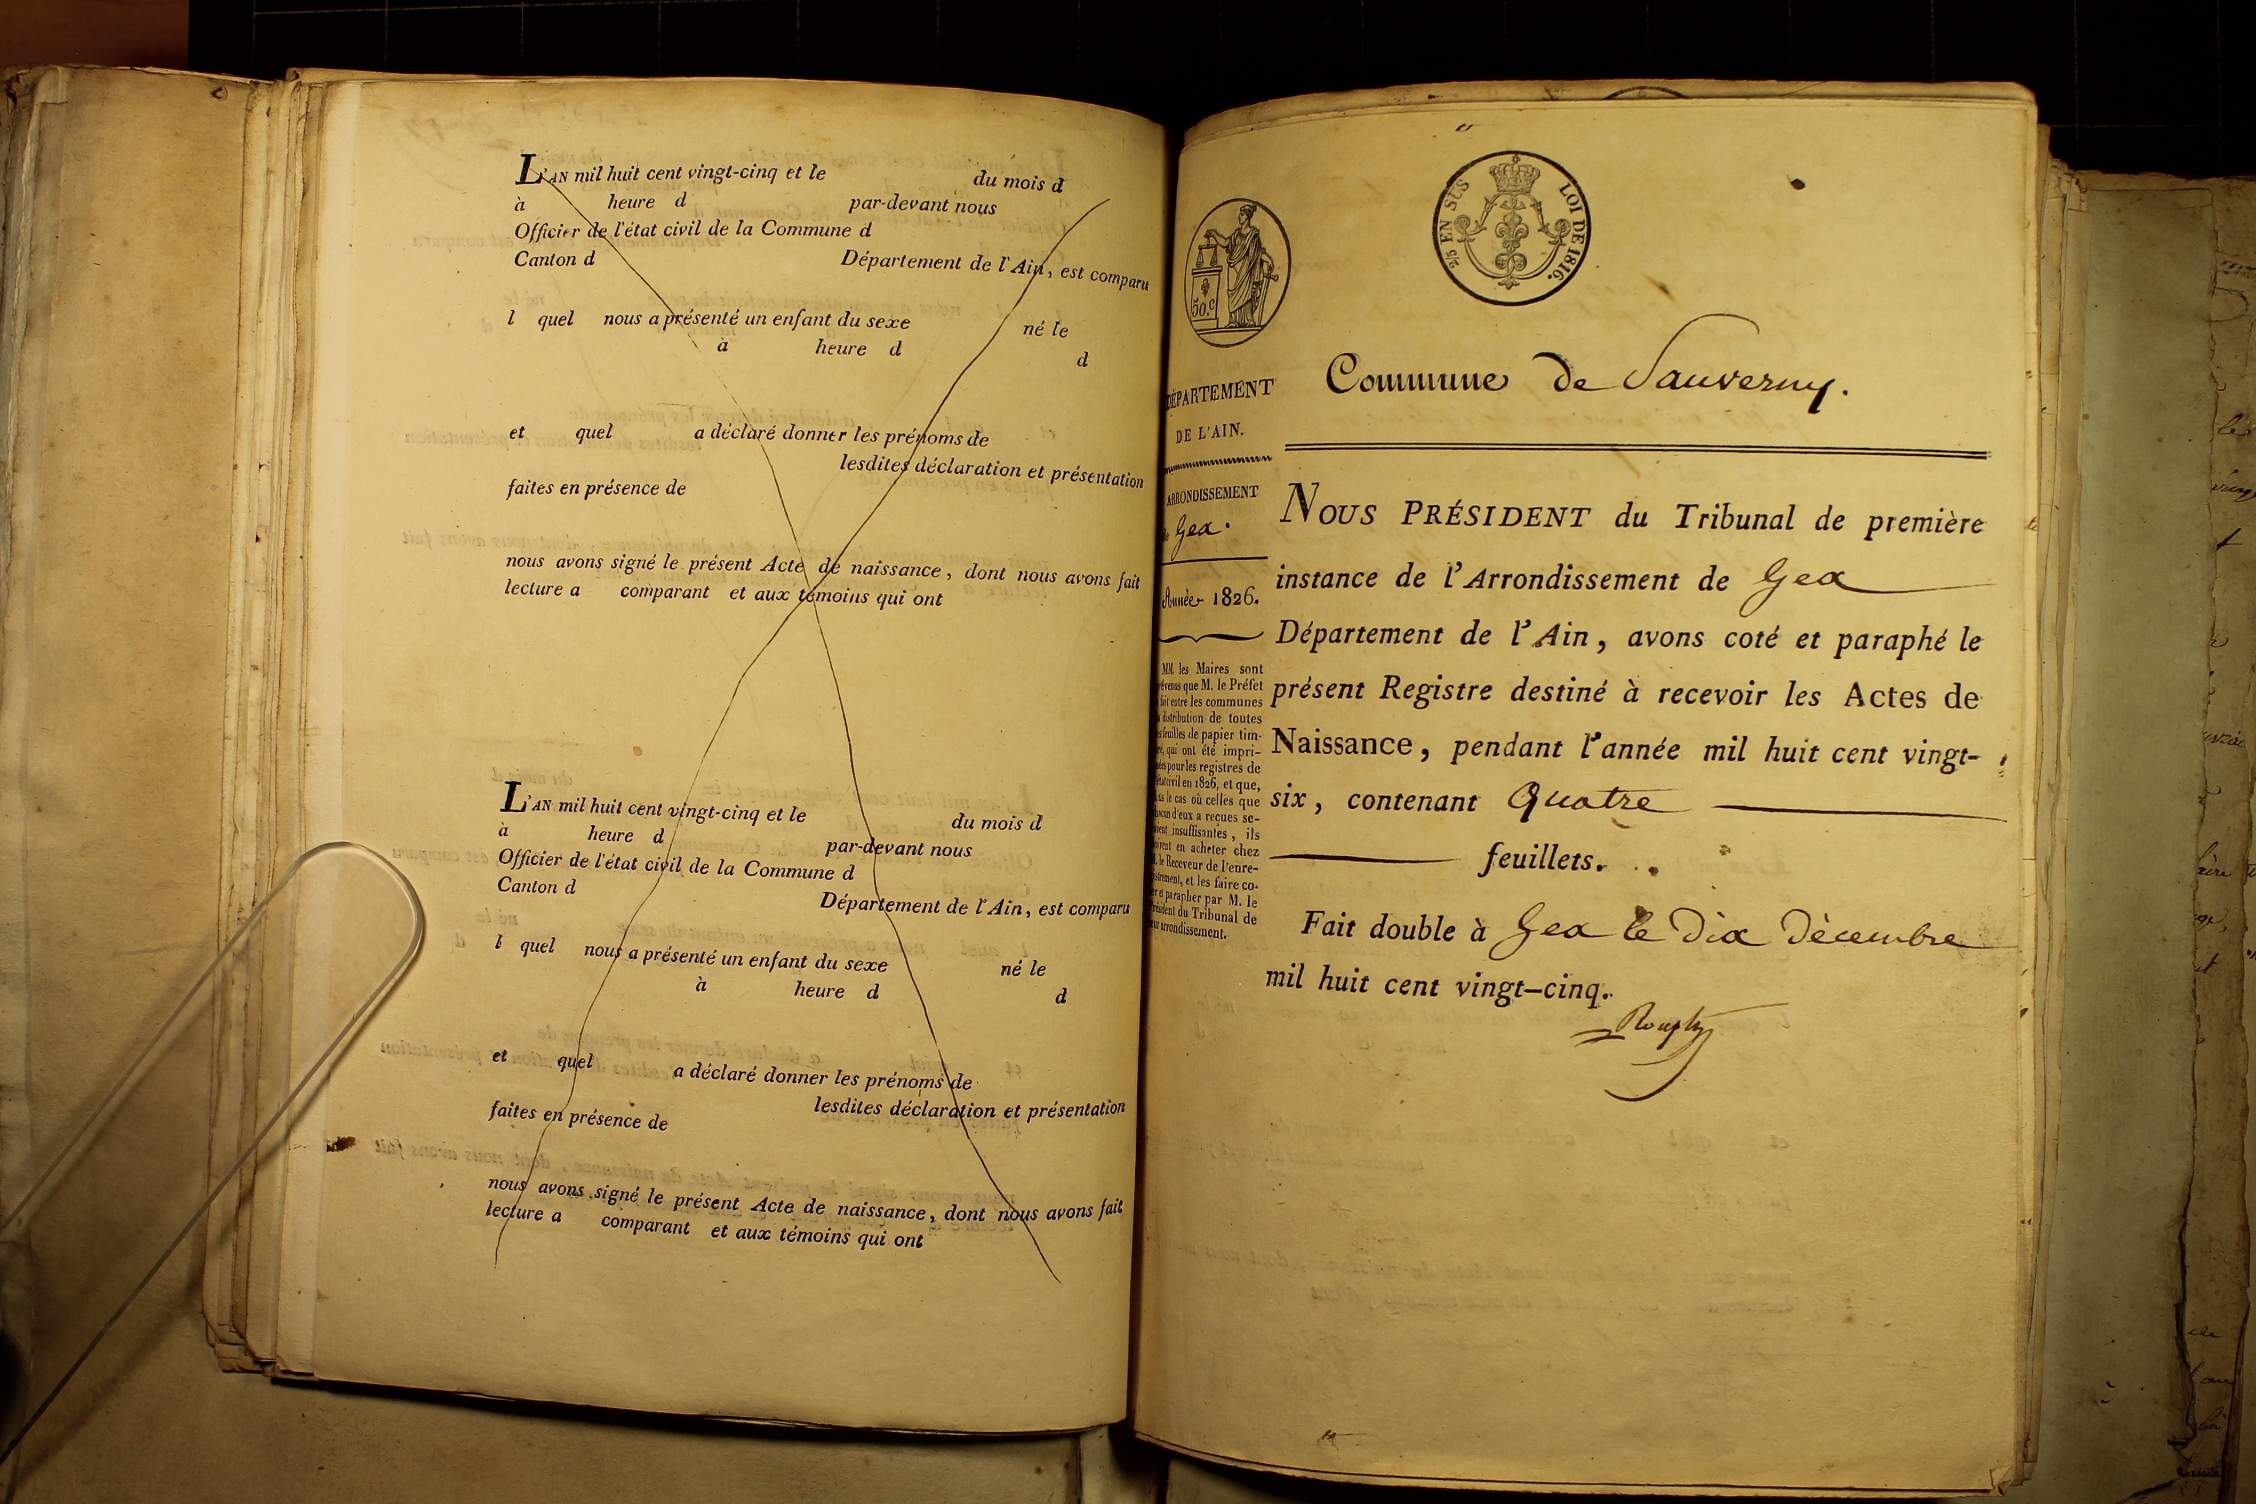 L'AN mil huit cent vingt-cinq et le du mois d
à heure d par-devant nous
Officier de l'état civil de la Commune d
Canton d Département de l'Ain, est comparu
l quel nous a présenté un enfant du sexe né le
à heure d d
et quel a déclaré donner les prénoms de
lesdites déclaration et présentation
faites en présence de
nous avons signé le présent Acte de naissance, dont nous avons fait
lecture a comparant et aux témoins qui ont
L'AN mil huit cent vingt-cinq et le du mois d
à heure d par-devant nous
Officier de l'état civil de la Commune d
Canton d Département de l'Ain, est comparu
l quel nous a présenté un enfant du sexe né le
à heure d d
et quel a déclaré donner les prénoms de
lesdites déclaration et présentation
faites en présence de
nous avons signé le présent Acte de naissance, dont nous avons fait
lecture a comparant et aux témoins qui ont
50.c
2/5 EN SUS LOI DE 1816.
DÉPARTEMENT
DE L'AIN.
ARRONDISSEMENT
de Gex.
Année 1826.
MM. les Maires sont
prévenus que M. le Préfet
fait entre les communes
la distribution de toutes
les feuilles de papier tim-
bré, qui ont été impri-
mées pour les registres de
l'état civil en 1826, et que,
dans le cas où celles que
chacun d'eux a reçues se-
raient insuffisantes, ils
doivent en acheter chez
M. le Receveur de l'enre-
gistrement, et les faire co-
ter et parapher par M. le
Président du Tribunal de
leur arrondissement.
Commune de Sauverny.
NOUS PRÉSIDENT du Tribunal de première
instance de l'Arrondissement de Gex
Département de l'Ain, avons coté et paraphé le
présent Registre destiné à recevoir les Actes de
Naissance, pendant l'année mil huit cent vingt-
six, contenant Quatre
feuillets.
Fait double à Gex le dix décembre
mil huit cent vingt-cinq.